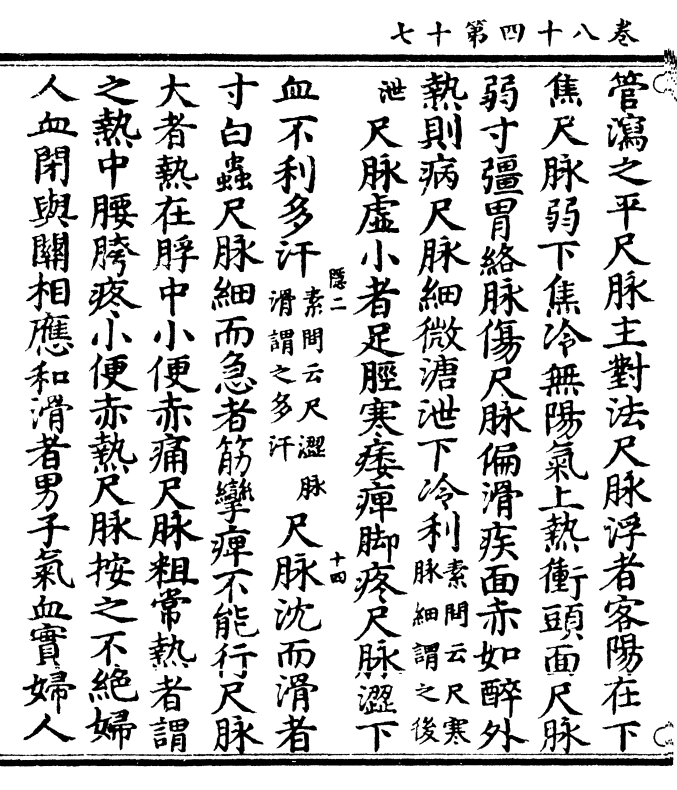 卷八十四第十七
管瀉之平尺脉主對法尺脉浮者客陽在下
焦尺脉弱下焦冷無陽氣上熱衝頭面尺脉
弱寸彊胃絡脉傷尺脉偏滑疾面赤如醉外
熱則病尺脉細微溏泄下冷利素問云尺寒脉細謂之後
泄尺脉虛小者足脛寒痿痺脚疼尺脉澀下
血不利多汗隱二素問云尺澀脉滑謂之多汗尺脉沈而滑者十四
寸白蟲尺脉細而急者筋攣痺不能行尺脉
大者熱在脬中小便赤痛尺脉粗常熱者謂
之熱中腰胯疼小便赤熱尺脉按之不絕婦
人血閉與關相應和滑者男子氣血實婦人